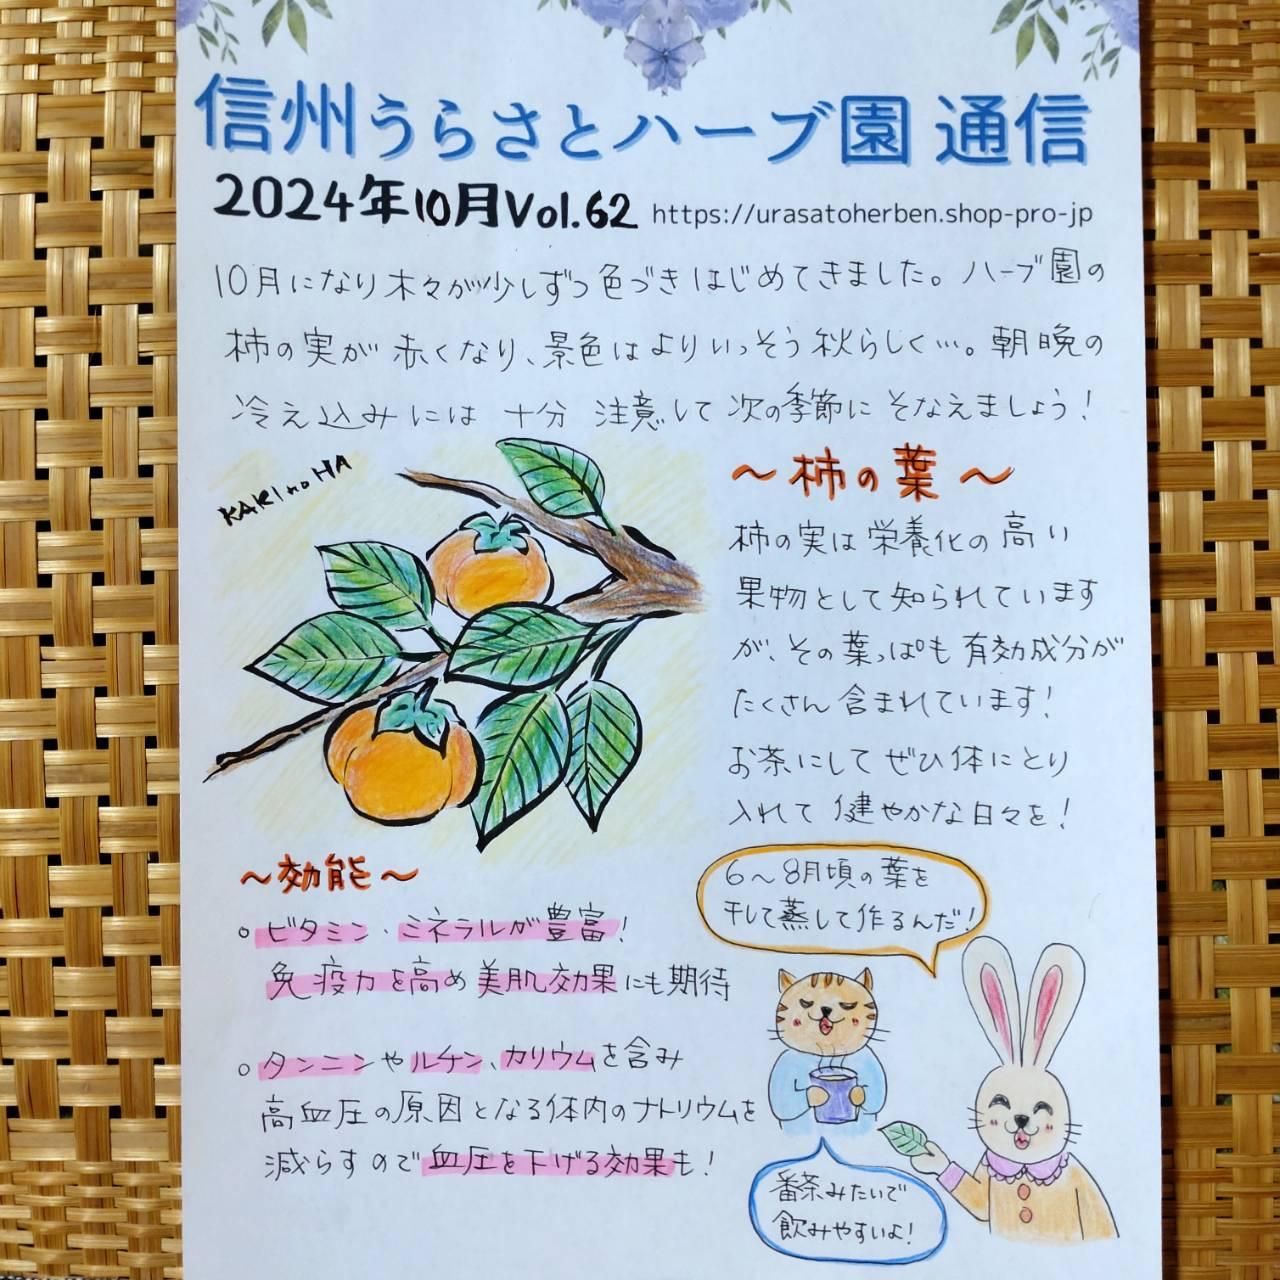 信州うらさとハーブ園 通信
2024年10月Vol.62 https://urasatoherben.shop-pro-jp
10月になり木々が少しずつ色づきはじめてきました。ハーブ園の
柿の実が赤くなり、景色はよりいっそう秋らしく…。朝晩の
冷え込みには十分注意して次の季節にそなえましょう!
KAKI no HA
〜柿の葉〜
柿の実は栄養化の高い
果物として知られています
が、その葉っぱも有効成分が
たくさん含まれています!
お茶にしてぜひ体にとり
入れて健やかな日々を!
〜効能〜
○ビタミン、ミネラルが豊富!
免疫力を高め美肌効果にも期待
○タンニンやルチン、カリウムを含み
高血圧の原因となる体内のナトリウムを
減らすので血圧を下げる効果も!
6〜8月頃の葉を
干して蒸して作るんだ!
番茶みたいで
飲みやすいよ!